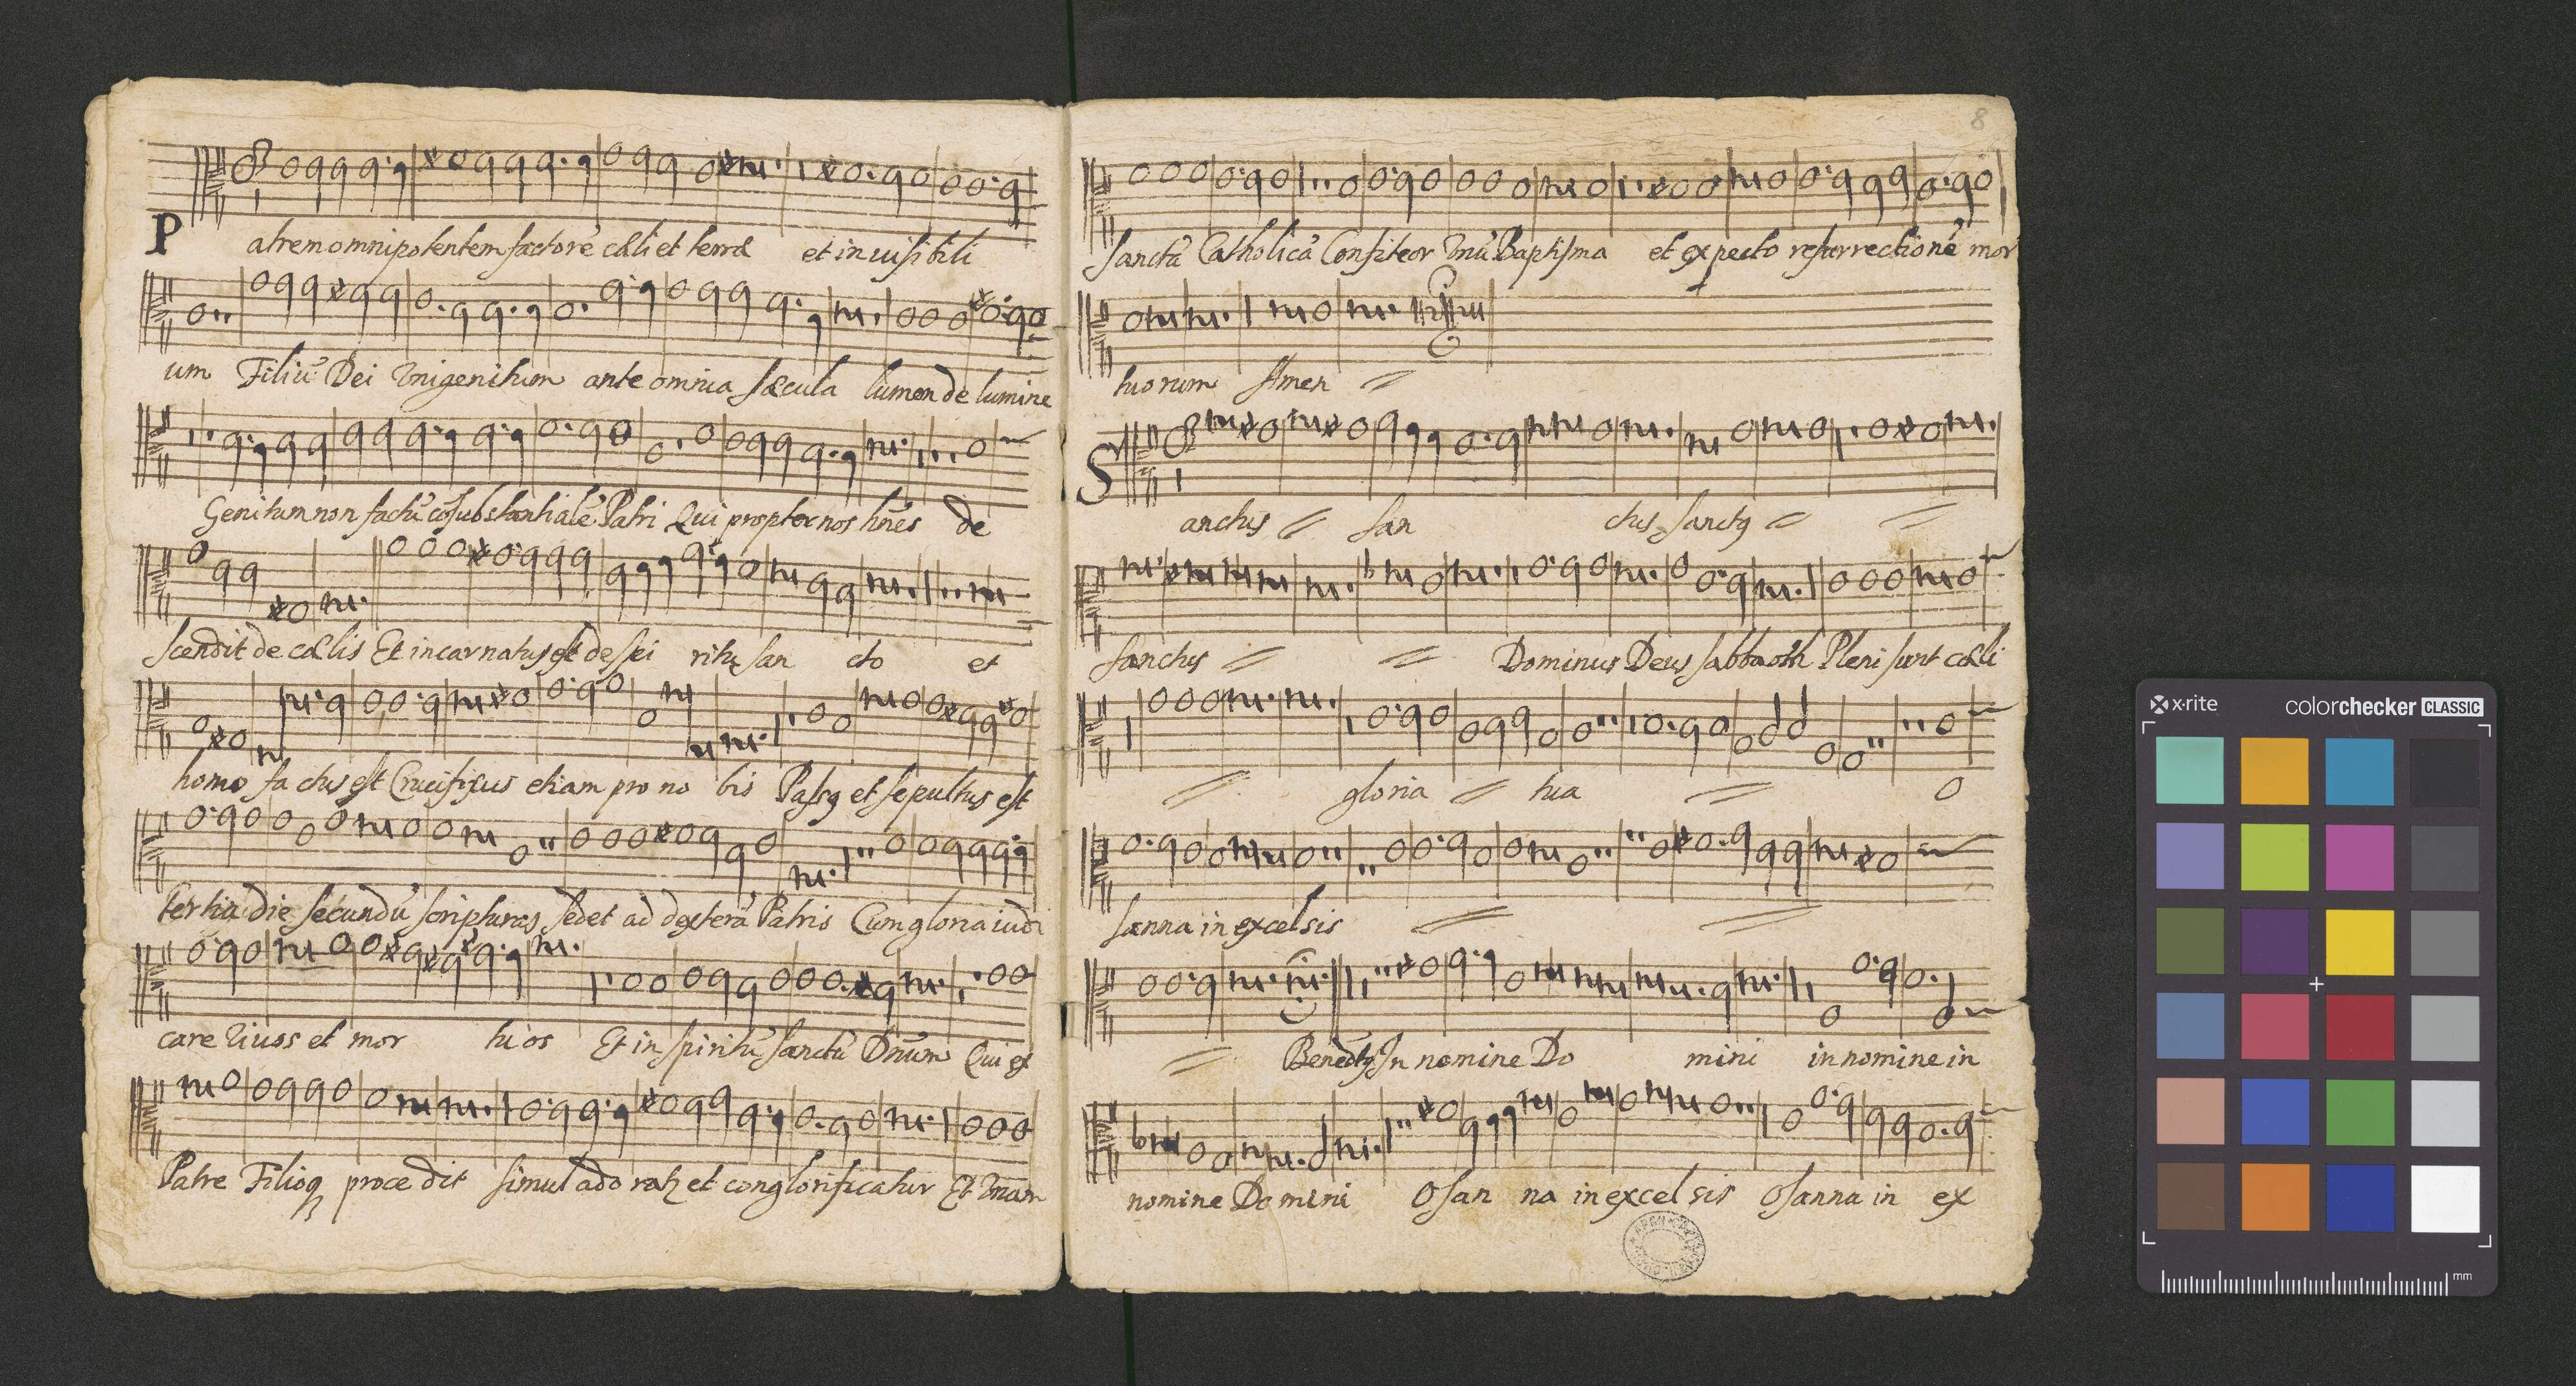 P
atrem omnipotentem factorē cæli et terræ et in uisibili
um Filiū Dei Vnigenitum ante omnia sæcula lumen de lumine
Genitum non factū cōsubstantialē Patri Qui propter nos hn̄es de
scendit de cælis Et incarnatus est de spi ritu san cto et
homo fa ctus est Crucifixus etiam pro no bis Passꝰ et sepultus est
tertia die secundū scripturas sedet ad dexterā Patris Cum gloria iudi
care viuos et mor tuos Et in spiritū sanctū Dn̄um Qui ex
Patre Filioq proce dit simul adoratꝰ et conglorificatur Et Vnam
8
sanctā Catholicā Confiteor Vnū Baptisma et expecto resurrectionē mor
tuorum Amen //
S
anctus // san ctus sanctꝰ // //
sanctus // // Dominus Deus sabbaoth Pleni sunt cæli
// gloria // tua // O
sanna in excelsis // //
// Benedꝰ In nomine Do mini in nomine in
nomine Do mini Osan na in excel sis Osanna in ex
x-rite
colorchecker CLASSIC
mm